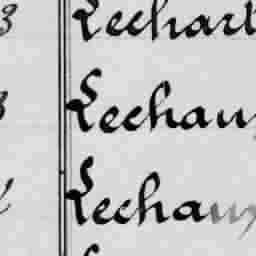 3 Lechart
3 Lechau
Lechau